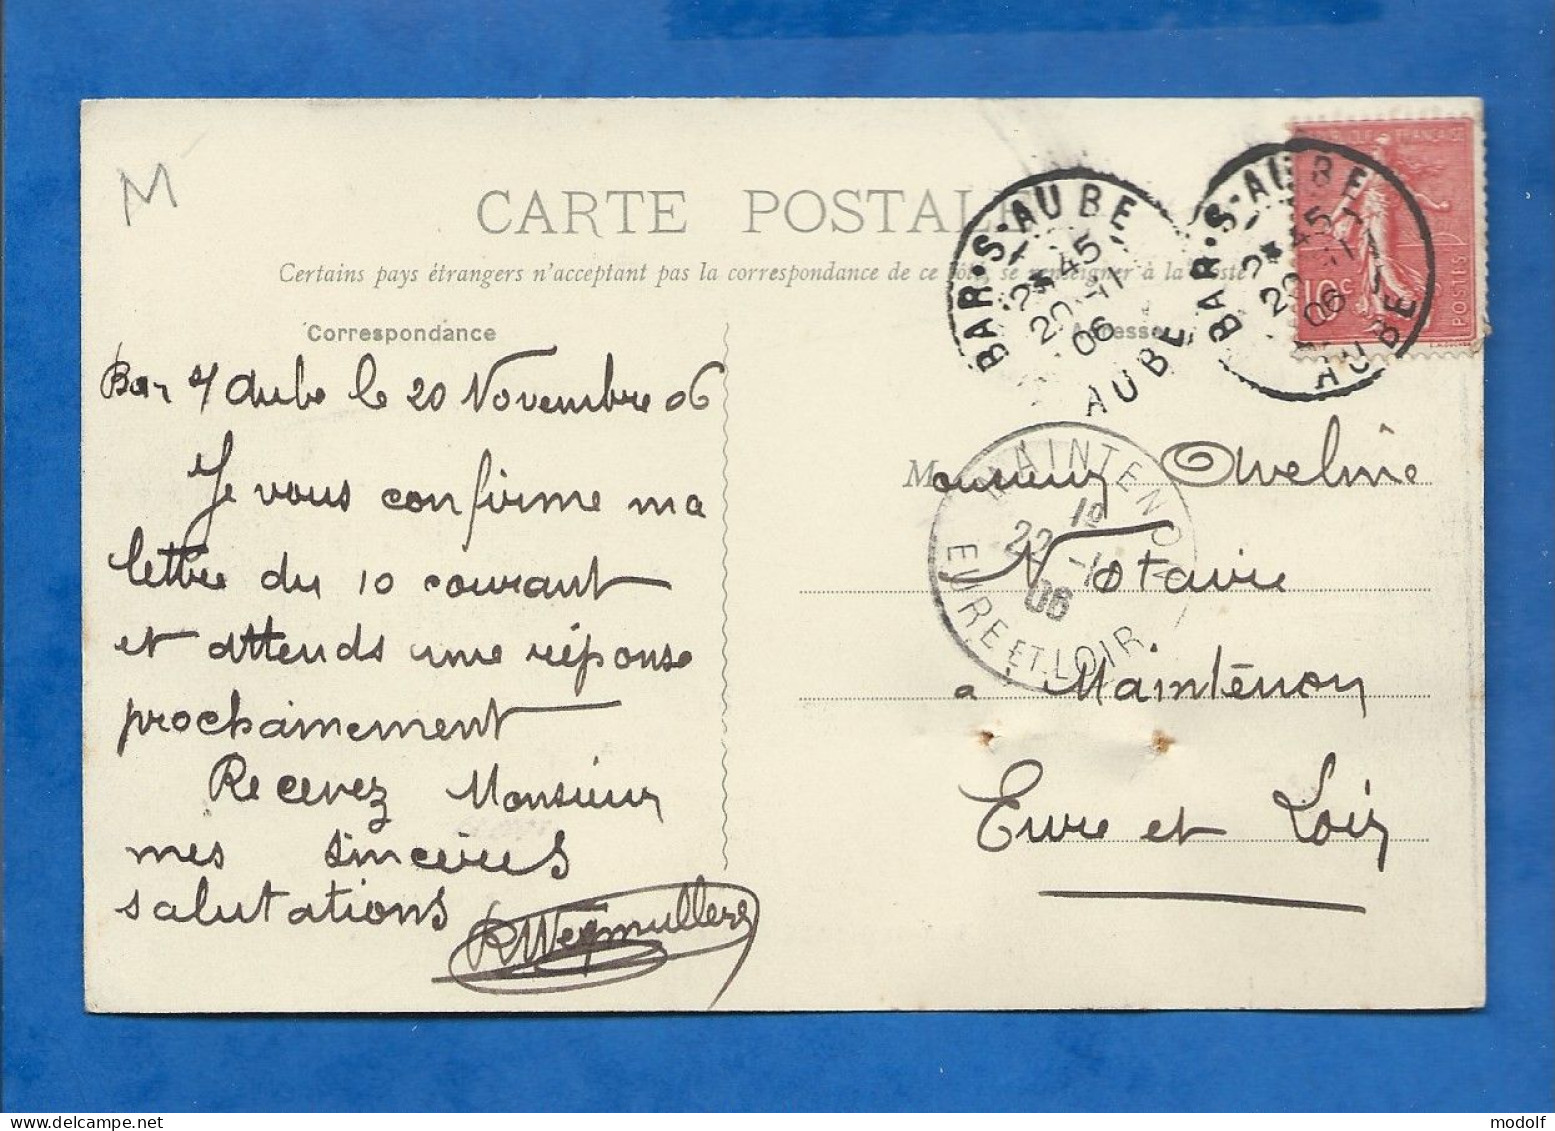 M
CARTE POSTALE
Certains pays étrangers n'acceptant pas la correspondance de ce côté, se renseigner à la Poste
Correspondance
Adresse
Bar s/ Aube le 20 Novembre 06
Je vous confirme ma
lettre du 10 courant
et attends une réponse
prochainement
Recevez Monsieur
mes sincères
salutations
RWeymullers
BAR-S-AUBE
2* 45
20-11
06
AUBE
BAR-S-AUBE
2* 45
20-11
06
AUBE
FRANÇAISE
10c
POSTES
MAINTENON
22 -11
06
EURE ET LOIR
Monsieur Aveline
Notaire
a Maintenon
Eure et Loir
modolf